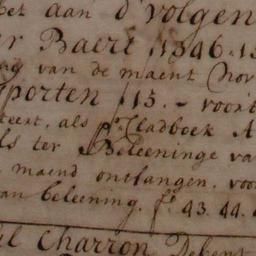 het aan d'volgen
er Baert 1346.15
ag van de maent Nov
porten 115.- voort
teert, als p Cladboek A
ls ter Beleeninge va
maend ontfangen, voo
an beleening. f 43.44.
el Charron Debent